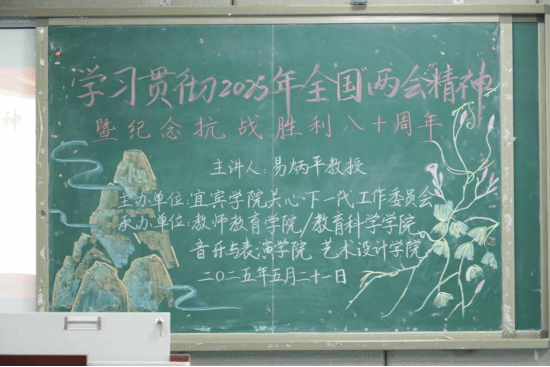 学习贯彻2025年全国“两会”精神
暨纪念抗战胜利八十周年
主讲人:易炳平教授
主办单位:宜宾学院关心下一代工作委员会
承办单位:教师教育学院/教育科学学院
音乐与表演学院 艺术设计学院
二〇二五年五月二十一日
神